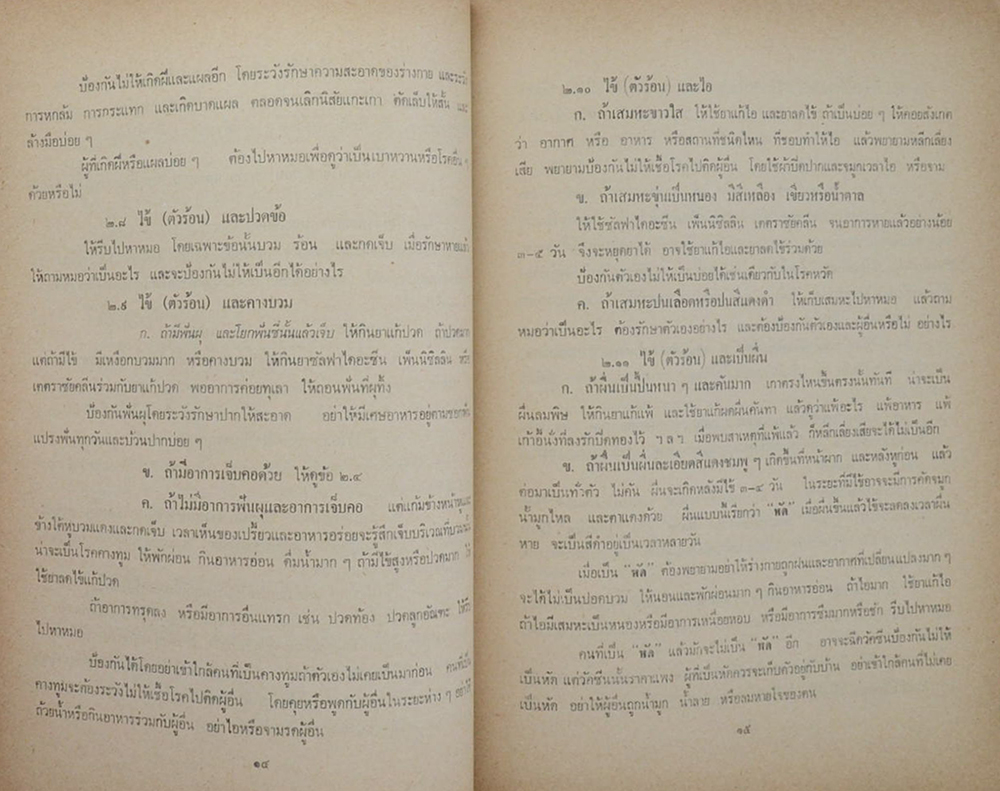 ป้องกันไม่ให้เกิดฝีและแผลอีก โดยระวังรักษาความสะอาดของร่างกาย และระวัง
การหกล้ม การกระแทก และเกิดบาดแผล ตลอดจนเลิกนิสัยแกะเกา ตัดเล็บให้สั้น และ
ล้างมือบ่อย ๆ
ผู้ที่เกิดฝีหรือแผลบ่อย ๆ ต้องไปหาหมอเพื่อดูว่าเป็นเบาหวานหรือโรคอื่น ๆ
ด้วยหรือไม่
๒.๘ ไข้ (ตัวร้อน) และปวดข้อ
ให้รีบไปหาหมอ โดยเฉพาะข้อนั้นบวม ร้อน และกดเจ็บ เมื่อรักษาหายแล้ว
ให้ถามหมอว่าเป็นอะไร และจะป้องกันไม่ให้เป็นอีกได้อย่างไร
๒.๙ ไข้ (ตัวร้อน) และคางบวม
ก. ถ้ามีฟันผุ และโยกฟันซี่นั้นแล้วเจ็บ ให้กินยาแก้ปวด ถ้าปวดมาก
แต่ถ้ามีไข้ มีเหงือกบวมมาก หรือคางบวม ให้กินยาซัลฟาไดอะซีน เพ็นนิซิลลิน หรือ
เตตราซัยคลีนร่วมกับยาแก้ปวด พออาการค่อยทุเลา ให้ถอนฟันที่ผุทิ้ง
ป้องกันฟันผุโดยระวังรักษาปากให้สะอาด อย่าให้มีเศษอาหารอยู่ตามซอกฟัน
แปรงฟันทุกวันและบ้วนปากบ่อย ๆ
ข. ถ้ามีอาการเจ็บคอด้วย ให้ดูข้อ ๒.๔
ค. ถ้าไม่มีอาการฟันผุและอาการเจ็บคอ แต่แก้มข้างหน้าหูและ
ข้างใต้หูบวมแดงและกดเจ็บ เวลาเห็นของเปรี้ยวและอาหารอร่อยจะรู้สึกเจ็บบริเวณที่บวมนั้น
น่าจะเป็นโรคคางทูม ให้พักผ่อน กินอาหารอ่อน ดื่มน้ำมาก ๆ ถ้ามีไข้สูงหรือปวดมาก ให้
ใช้ยาลดไข้แก้ปวด
ถ้าอาการทรุดลง หรือมีอาการอื่นแทรก เช่น ปวดท้อง ปวดลูกอัณฑะ ให้รีบ
ไปหาหมอ
ป้องกันได้โดยอย่าเข้าใกล้คนที่เป็นคางทูมถ้าตัวเองไม่เคยเป็นมาก่อน คนที่เป็น
คางทูมจะต้องระวังไม่ให้เชื้อโรคไปติดผู้อื่น โดยคุยหรือพูดกับผู้อื่นในระยะห่าง ๆ อย่าใช้
ถ้วยน้ำหรือกินอาหารร่วมกับผู้อื่น อย่าไอหรือจามรดผู้อื่น
๑๔
๒.๑๐ ไข้ (ตัวร้อน) และไอ
ก. ถ้าเสมหะขาวใส ให้ใช้ยาแก้ไอ และยาลดไข้ ถ้าเป็นบ่อย ๆ ให้คอยสังเกต
ว่า อากาศ หรือ อาหาร หรือสถานที่ชนิดไหน ที่ชอบทำให้ไอ แล้วพยายามหลีกเลี่ยง
เสีย พยายามป้องกันไม่ให้เชื้อโรคไปติดผู้อื่น โดยใช้ผ้าปิดปากและจมูกเวลาไอ หรือจาม
ข. ถ้าเสมหะขุ่นเป็นหนอง มีสีเหลือง เขียวหรือน้ำตาล
ให้ใช้ซัลฟาไดอะซีน เพ็นนิซิลลิน เตตราซัยคลีน จนอาการหายแล้วอย่างน้อย
๓-๔ วัน จึงจะหยุดยาได้ อาจใช้ยาแก้ไอและยาลดไข้ร่วมด้วย
ป้องกันตัวเองไม่ให้เป็นบ่อยได้เช่นเดียวกับในโรคหวัด
ค. ถ้าเสมหะปนเลือดหรือปนสีแดงดำ ให้เก็บเสมหะไปหาหมอ แล้วถาม
หมอว่าเป็นอะไร ต้องรักษาตัวเองอย่างไร และต้องป้องกันตัวเองและผู้อื่นหรือไม่ อย่างไร
๒.๑๑ ไข้ (ตัวร้อน) และเป็นผื่น
ก. ถ้าผื่นเป็นปื้นหนา ๆ และคันมาก เกาตรงไหนขึ้นตรงนั้นทันที น่าจะเป็น
ผื่นลมพิษ ให้กินยาแก้แพ้ และใช้ยาแก้ผดผื่นคันทา แล้วดูว่าแพ้อะไร แพ้อาหาร แพ้
เก้าอี้นั่งที่ลงรักปิดทองไว้ ฯลฯ เมื่อพบสาเหตุที่แพ้แล้ว ก็หลีกเลี่ยงเสียจะได้ไม่เป็นอีก
ข. ถ้าผื่นเป็นผื่นละเอียดสีแดงชมพู ๆ เกิดขึ้นที่หน้าผาก และหลังหูก่อน แล้ว
ต่อมาเป็นทั่วตัว ไม่คัน ผื่นจะเกิดหลังมีไข้ ๓-๔ วัน ในระยะที่มีไข้อาจมีการคัดจมูก
น้ำมูกไหล และตาแดงด้วย ผื่นแบบนี้เรียกว่า “หัด” เมื่อผื่นขึ้นแล้วไข้จะลดลงเวลาผื่น
หาย จะเป็นสีดำอยู่เป็นเวลาหลายวัน
เมื่อเป็น “หัด” ต้องพยายามอย่าให้ร่างกายถูกฝนและอากาศที่เปลี่ยนแปลงมาก ๆ
จะได้ไม่เป็นปอดบวม ให้นอนและพักผ่อนมาก ๆ กินอาหารอ่อน ถ้าไอมาก ใช้ยาแก้ไอ
ถ้าไอมีเสมหะเป็นหนองหรือมีอาการเหนื่อยหอบ หรือมีอาการซึมมากหรือชัก รีบไปหาหมอ
คนที่เป็น “หัด” แล้วมักจะไม่เป็น “หัด” อีก อาจจะฉีดวัคซีนป้องกันไม่ให้
เป็นหัด แต่วัคซีนนั้นราคาแพง ผู้ที่เป็นหัดควรจะเก็บตัวอยู่กับบ้าน อย่าเข้าใกล้คนที่ไม่เคย
เป็นหัด อย่าให้ผู้อื่นถูกน้ำมูก น้ำลาย หรือลมหายใจของตน
๑๕